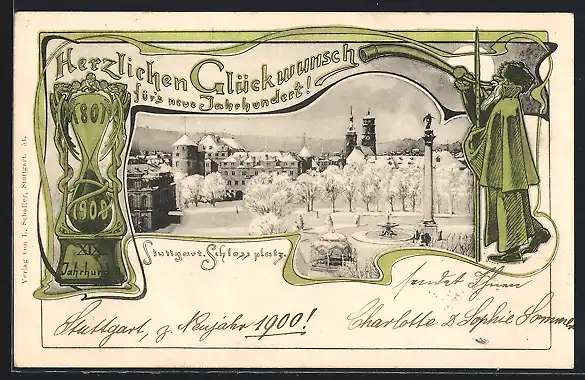 Herzlichen Glückwunsch
für's neue Jahrhundert!
1801
1900
XIX
Jahrhund
Stuttgart. Schlossplatz.
Verlag von L. Schaller, Stuttgart. 51.
sendet Ihnen
Stuttgart, z. Neujahr 1900!
Charlotte & Sophie